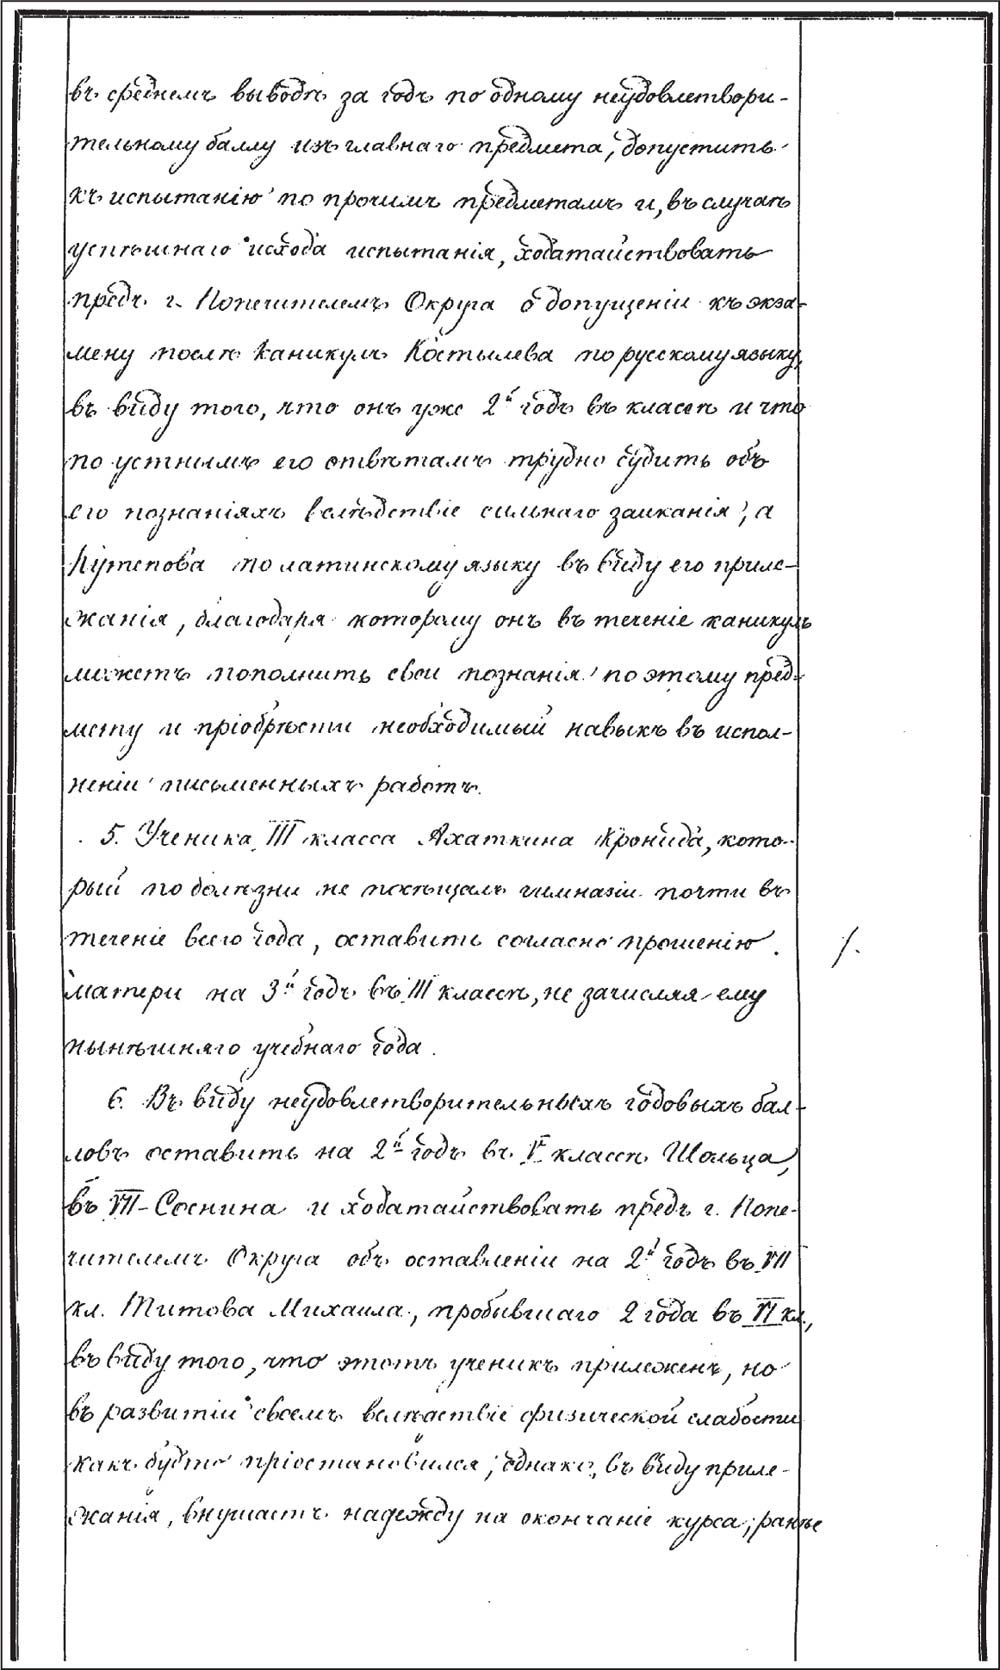 въ среднемъ выводѣ за годъ по одному неудовлетвори-
тельному баллу изъ главнаго предмета, допустить
къ испытанію по прочимъ предметамъ и, въ случаѣ
успѣшнаго исхода испытанія, ходатайствовать
предъ г. Попечителемъ Округа о допущеніи къ экза-
мену послѣ каникулъ Костылева по русскому языку,
въ виду того, что онъ уже 2й годъ въ классѣ и что
по устнымъ его отвѣтамъ трудно судить объ
его познаніяхъ вслѣдствіе сильнаго заиканія, а
Кутепова по латинскому языку въ виду его приле-
жанія, благодаря которому онъ въ теченіе каникулъ
можетъ пополнить свои познанія по этому пред-
мету и пріобрѣсти необходимый навыкъ въ испол-
неніи письменныхъ работъ.
5. Ученика III класса Ахаткина Кронида, кото-
рый по болѣзни не посѣщалъ гимназіи почти въ
теченіе всего года, оставить согласно прошенію
матери на 3й годъ въ III классѣ, не зачисляя ему
нынѣшняго учебнаго года.
6. Въ виду неудовлетворительныхъ годовыхъ бал-
ловъ оставить на 2й годъ въ V классѣ Шольца,
въ VII - Соснина и ходатайствовать предъ г. Попе-
чителемъ Округа объ оставленіи на 2й годъ въ VII
кл. Титова Михаила, пробывшаго 2 года въ VI кл.,
въ виду того, что этотъ ученикъ прилеженъ, но
въ развитіи своемъ вслѣдствіе физической слабости
какъ будто пріостановился; однако, въ виду приле-
жанія, внушаетъ надежду на окончаніе курса; ранѣе